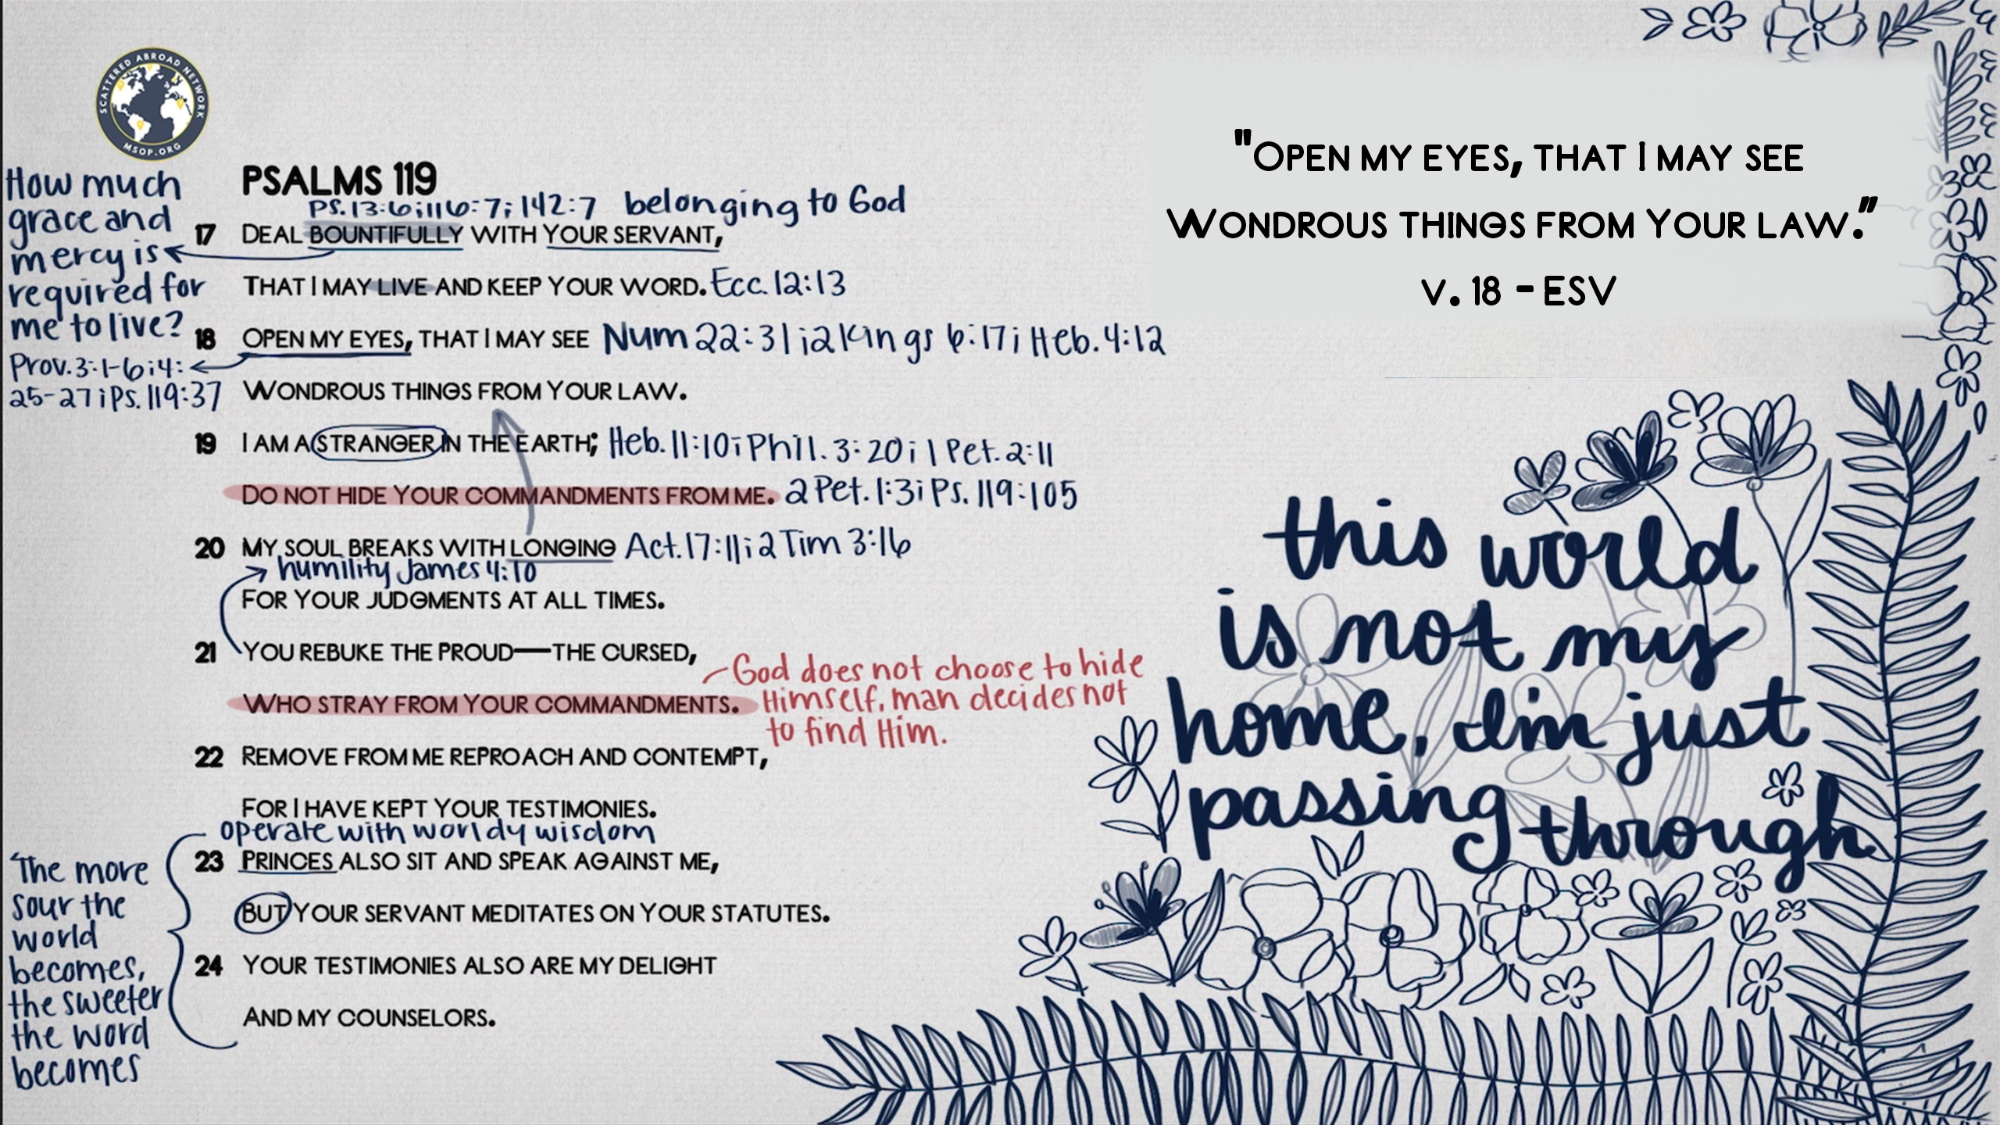 SCATTERED ABROAD NETWORK
MSOP.ORG
"OPEN MY EYES, THAT I MAY SEE
WONDROUS THINGS FROM YOUR LAW.”
V. 18 - ESV
PSALMS 119
Ps. 13:6; 116:7; 142:7 belonging to God
17 DEAL BOUNTIFULLY WITH YOUR SERVANT,
THAT I MAY LIVE AND KEEP YOUR WORD. Ecc. 12:13
18 OPEN MY EYES, THAT I MAY SEE Num 22:31; 2 Kings 6:17; Heb. 4:12
WONDROUS THINGS FROM YOUR LAW.
19 I AM A STRANGER IN THE EARTH; Heb. 11:10; Phil. 3:20; 1 Pet. 2:11
DO NOT HIDE YOUR COMMANDMENTS FROM ME. 2 Pet. 1:3; Ps. 119:105
20 MY SOUL BREAKS WITH LONGING Act. 17:11; 2 Tim 3:16
humility James 4:10
FOR YOUR JUDGMENTS AT ALL TIMES.
21 YOU REBUKE THE PROUD—THE CURSED,
WHO STRAY FROM YOUR COMMANDMENTS.
God does not choose to hide
Himself, man decides not
to find Him.
22 REMOVE FROM ME REPROACH AND CONTEMPT,
FOR I HAVE KEPT YOUR TESTIMONIES.
operate with worldy wisdom
23 PRINCES ALSO SIT AND SPEAK AGAINST ME,
BUT YOUR SERVANT MEDITATES ON YOUR STATUTES.
24 YOUR TESTIMONIES ALSO ARE MY DELIGHT
AND MY COUNSELORS.
How much
grace and
mercy is
required for
me to live?
Prov. 3:1-6; 4:
25-27; Ps. 119:37
The more
sour the
world
becomes,
the sweeter
the word
becomes
this world
is not my
home, I'm just
passing through